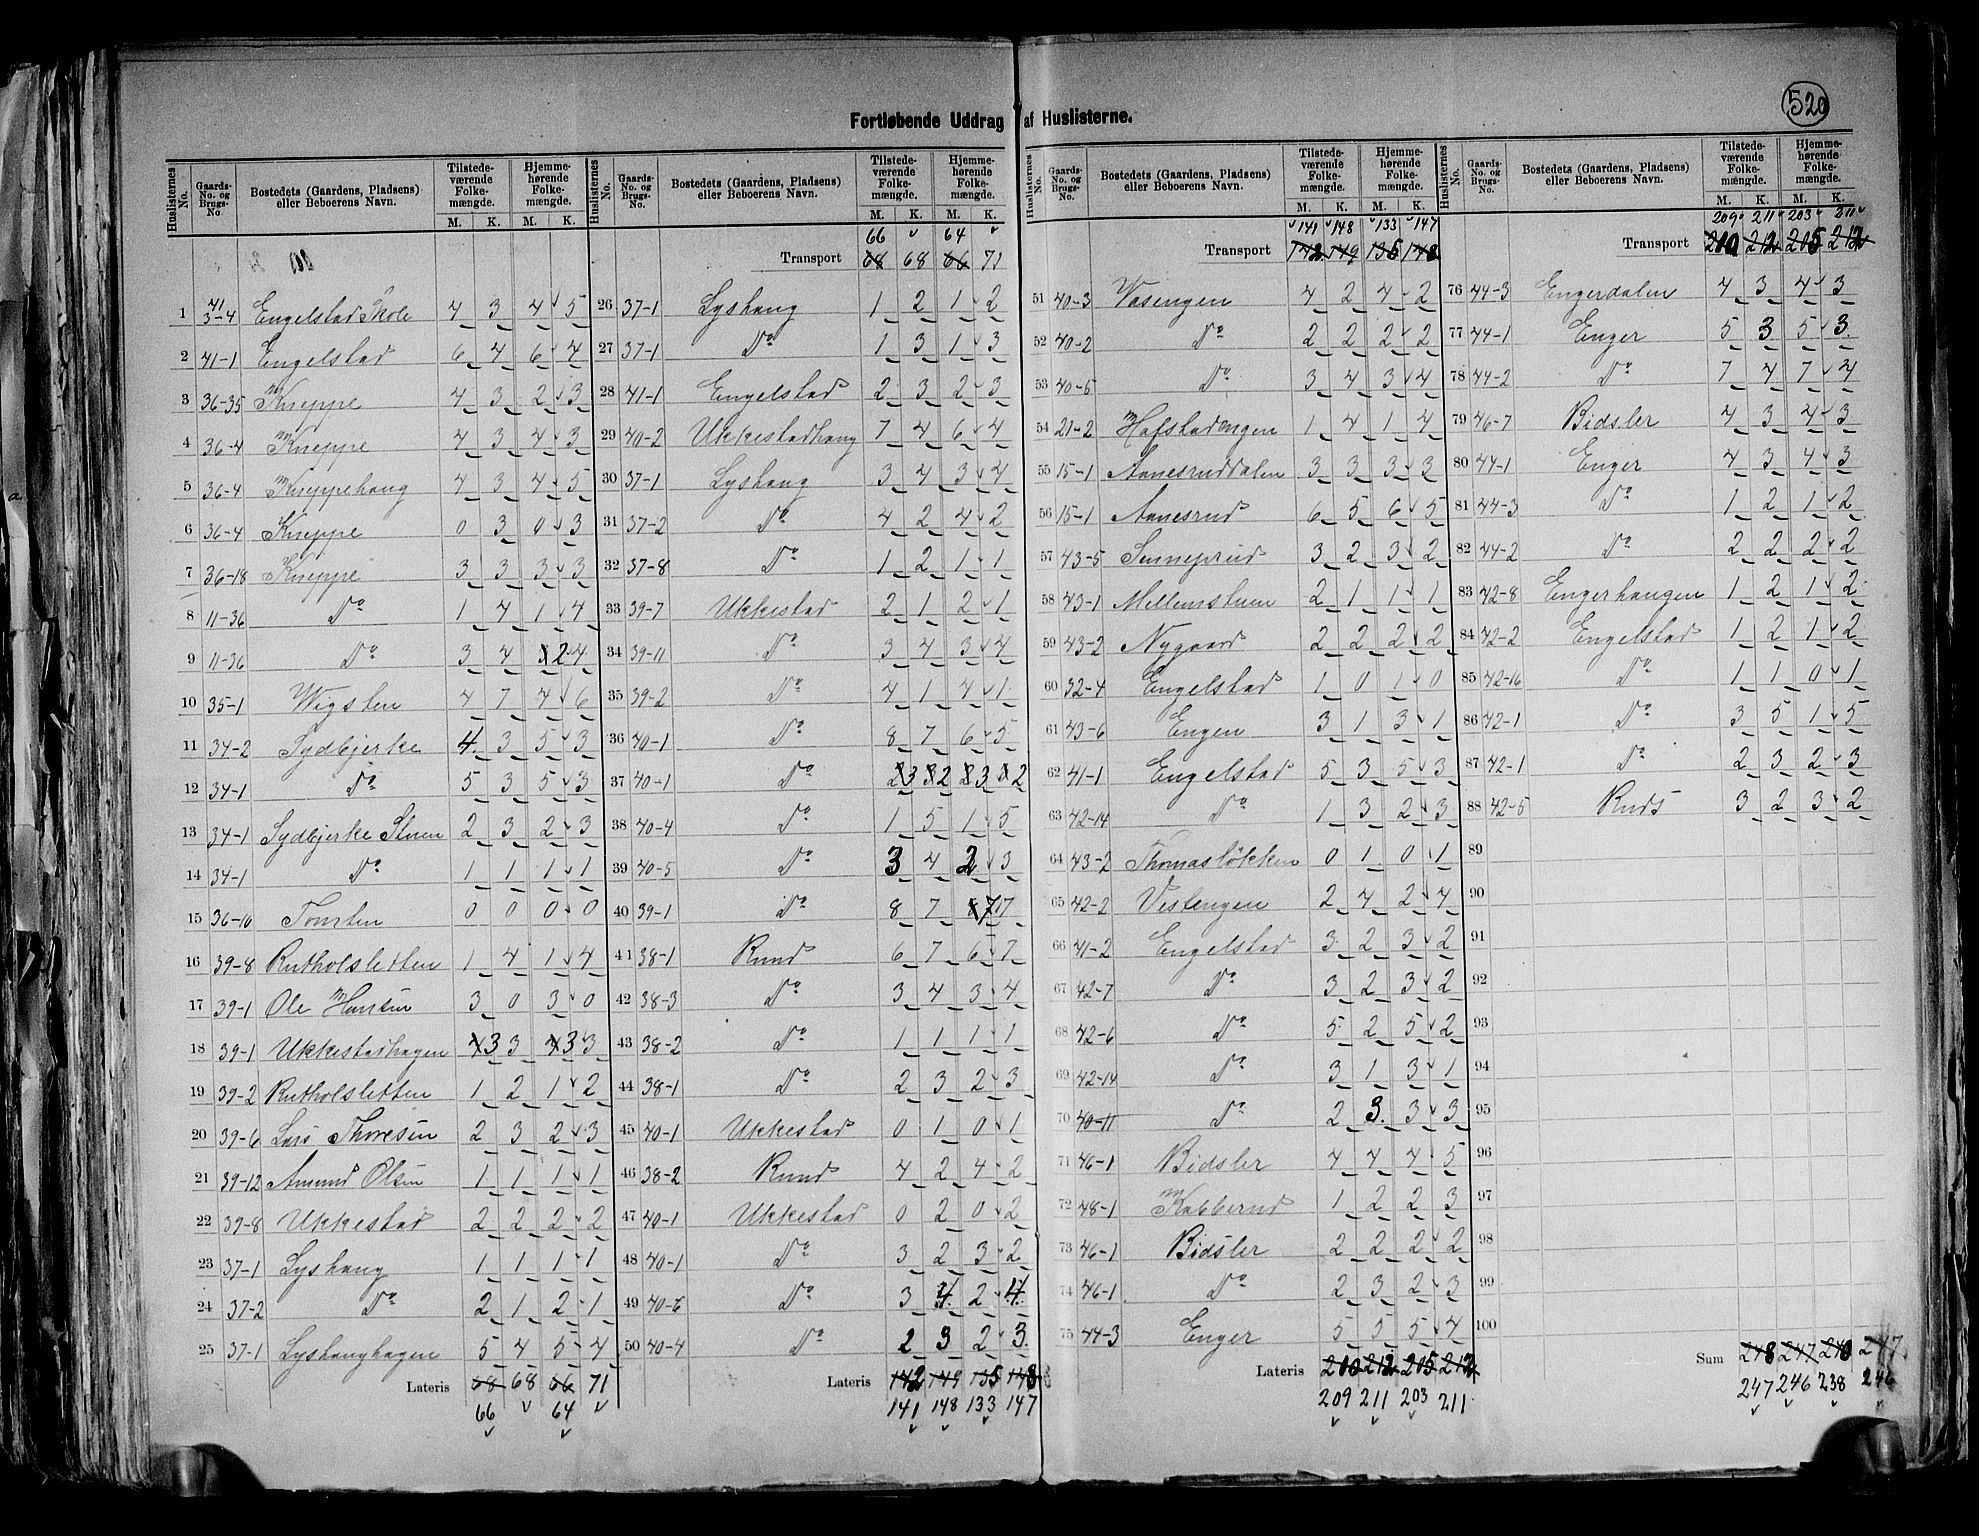 520
Fortløbende Uddrag af Huslisterne.
Huslisternes No. | Gaards-No. og Brugs-No. | Bostedets (Gaardens, Pladsens) eller Beboerens Navn. | Tilstedeværende Folkemængde. M. K. | Hjemmehørende Folkemængde. M. K.
1 41 3-4 Engelstad Skole 4 3 4 5
2 41-1 Engelstad 6 4 6 4
3 36-35 Kneppe 4 3 2 3
4 36-4 Kneppe 4 3 4 3
5 36-4 Kneppehaug 4 3 4 5
6 36-4 Kneppe 0 3 0 3
7 36-18 Kneppe 3 3 3 3
8 11-36 Do 1 4 1 4
9 11-36 Do 3 4 2 4
10 35-1 Wigsten 4 7 4 6
11 34-2 Sydbjerke 4 3 5 3
12 34-1 Do 5 3 5 3
13 34-1 Sydbjerke Stuen 2 3 2 3
14 34-1 Do 1 1 1 1
15 36-10 Tomten 0 0 0 0
16 39-8 Rutholsletten 1 4 1 4
17 39-1 Ole Hansen 3 0 3 0
18 39-1 Ukkestadhagen 3 3 3 3
19 39-2 Rutholsletten 1 2 1 2
20 39-6 Lars Thoresen 2 3 2 3
21 39-12 Amund Olsen 1 1 1 1
22 39-8 Ukkestad 2 2 2 2
23 37-1 Lyshaug 1 1 1 1
24 37-2 Do 2 1 2 1
25 37-1 Lyshaughagen 5 4 5 4
Lateris 68 68 66 71
66 64
Huslisternes No. | Gaards-No. og Brugs-No. | Bostedets (Gaardens, Pladsens) eller Beboerens Navn. | Tilstedeværende Folkemængde. M. K. | Hjemmehørende Folkemængde. M. K.
66 64
Transport 68 68 66 71
26 37-1 Lyshaug 1 2 1 2
27 37-1 Do 1 3 1 3
28 41-1 Engelstad 2 3 2 3
29 40-2 Ukkestadhaug 7 4 6 4
30 37-1 Lyshaug 3 4 3 4
31 37-2 Do 4 2 4 2
32 37-8 Do 1 2 1 1
33 39-7 Ukkestad 2 1 2 1
34 39-11 Do 3 4 3 4
35 39-2 Do 4 1 4 1
36 40-1 Do 8 7 6 5
37 40-1 Do 3 2 3 2
38 40-4 Do 1 5 1 5
39 40-5 Do 3 4 2 3
40 39-1 Do 8 7 7 7
41 38-1 Ruud 6 7 6 7
42 38-3 Do 3 4 3 4
43 38-2 Do 1 1 1 1
44 38-1 Do 2 3 2 3
45 40-1 Ukkestad 0 1 0 1
46 38-2 Ruud 4 2 4 2
47 40-1 Ukkestad 0 2 0 2
48 40-1 Do 3 2 3 2
49 40-6 Do 3 4 2 4
50 40-4 Do 2 3 2 3
Lateris 142 149 135 148
141 148 133 147
Huslisternes No. | Gaards-No. og Brugs-No. | Bostedets (Gaardens, Pladsens) eller Beboerens Navn. | Tilstedeværende Folkemængde. M. K. | Hjemmehørende Folkemængde. M. K.
141 148 133 147
Transport 142 149 135 148
51 40-3 Vasengen 4 2 4 2
52 40-2 Do 2 2 2 2
53 40-5 Do 3 4 3 4
54 21-2 Hafstadengen 1 4 1 4
55 15-1 Aanesruddalen 3 3 3 3
56 15-1 Aanesrud 6 5 6 5
57 43-5 3 2 3 2
58 43-1 Mellemstuen 2 1 1 1
59 43-2 Nygaard 2 2 2 2
60 32-4 Engelstad 1 0 1 0
61 43-6 Engen 3 1 3 1
62 41-1 Engelstad 5 3 5 3
63 42-14 Do 1 3 2 3
64 43-2 Thomasløkken 0 1 0 1
65 42-2 Vestengen 2 4 2 4
66 41-2 Engelstad 3 2 3 2
67 42-7 Do 3 2 3 2
68 42-6 Do 5 2 5 2
69 42-14 Do 3 1 3 1
70 40-11 Do 2 3 3 3
71 46-1 Bidsler 4 4 4 5
72 48-1 Kabberud 1 2 2 3
73 46-1 Bidsler 2 2 2 2
74 46-1 Do 2 3 2 3
75 44-3 Enger 5 5 5 4
Lateris 210 212 205 212
209 211 203 211
Huslisternes No. | Gaards-No. og Brugs-No. | Bostedets (Gaardens, Pladsens) eller Beboerens Navn. | Tilstedeværende Folkemængde. M. K. | Hjemmehørende Folkemængde. M. K.
209 211 203 211
Transport 210 212 205 212
76 44-3 Engerdalen 4 3 4 3
77 44-1 Enger 5 3 5 3
78 44-2 Do 7 4 7 4
79 46-7 Bidsler 4 3 4 3
80 44-1 Enger 4 3 4 3
81 44-3 Do 1 2 1 2
82 44-2 Do 2 2 2 2
83 42-8 Engerhaugen 1 2 1 2
84 42-2 Engelstad 1 2 1 2
85 42-16 Do 1 1 0 1
86 42-1 Do 3 5 1 5
87 42-1 Do 2 3 2 3
88 42-5 Ruds 3 2 3 2
89
90
91
92
93
94
95
96
97
98
99
100
Sum 248 247 240 247
247 246 238 246